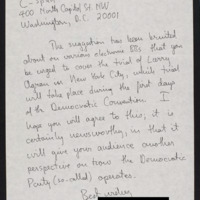 C-Span
400 North Capitol St. NW
Washington, D.C. 20001
The suggestion has been bruited
about on various electronic BBs that you
be urged to cover the trial of Larry
in New York City, which trial
will take place during the first days
of the Democratic Convention. I
hope you will agree to this; it is
certainly newsworthy, in that it
will give your audience another
perspective on how the Democratic
Party (so-called) operates.
Best wishes,